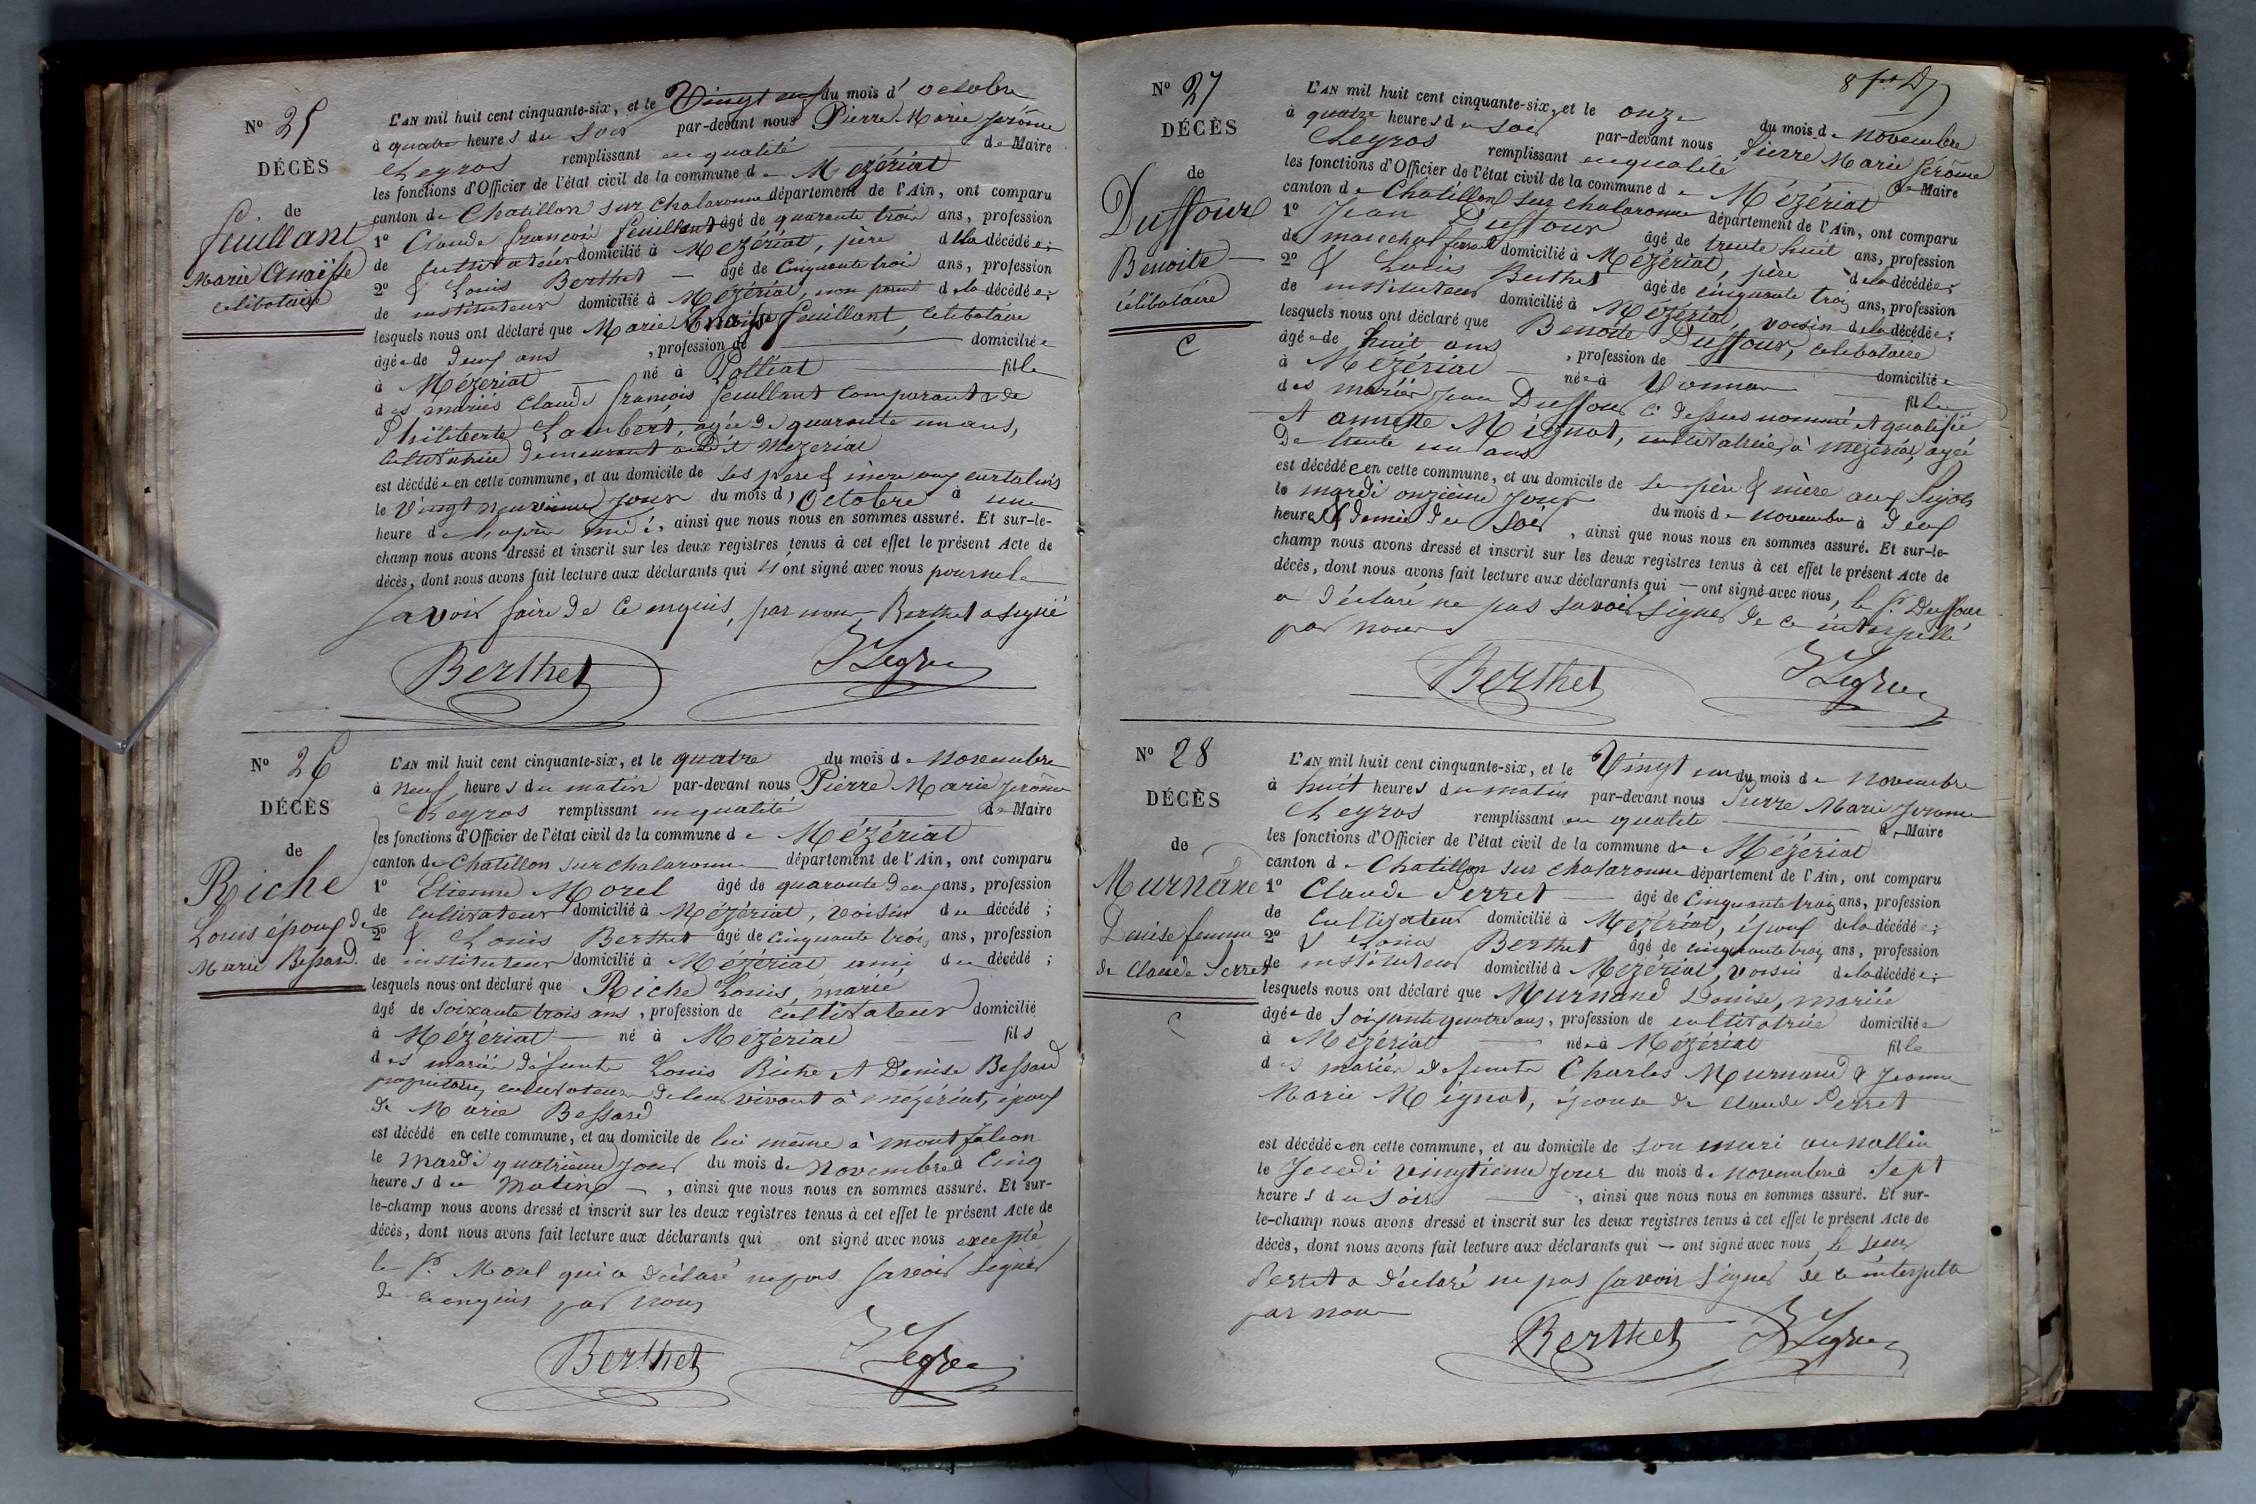 N° 25
DÉCÈS
de
feuillant
Marie Anaïsse
celibataire
L'AN mil huit cent cinquante-six, et le Vingt neuf du mois d' octobre
à quatre heures du soir par-devant nous Pierre Marie Jérôme
remplissant en qualité de Maire
les fonctions d'Officier de l'état civil de la commune de Mézériat
canton de Chatillon sur chalaronne département de l'Ain, ont comparu
1° Claude françois feuillant âgé de quarante trois ans, profession
de cultivateur domicilié à Mézériat, père de la décédée;
2° & Louis Berthet âgé de cinquante trois ans, profession
de instituteur domicilié à Mézériat, non parent de la décédée;
lesquels nous ont déclaré que Marie Anaïsse feuillant, celibataire
âgée de deux ans, profession de domiciliée
à Mézériat né à Polliat fille
des mariés Claude françois feuillant comparant & de
Philiberte Lambert, agée de quarante un ans,
cultivatrice demeurant audit Mézériat
est décédée en cette commune, et au domicile de ses père & mère aux
le vingt neuvième jour du mois d'Octobre à une
heure de l'après midi, ainsi que nous nous en sommes assuré. Et sur-le-
champ nous avons dressé et inscrit sur les deux registres tenus à cet effet le présent Acte de
décès, dont nous avons fait lecture aux déclarants qui n'ont signé avec nous pour ne le
savoir faire de ce enquis, par nous, Berthet a signé
Berthet
N° 26
DÉCÈS
de
Riche
Louis époux de
Marie Bessard.
L'AN mil huit cent cinquante-six, et le quatre du mois de Novembre
à neuf heures du matin par-devant nous Pierre Marie Jérôme
remplissant en qualité de Maire
les fonctions d'Officier de l'état civil de la commune de Mézériat
canton de Chatillon sur chalaronne département de l'Ain, ont comparu
1° Etienne Morel âgé de quarante deux ans, profession
de cultivateur domicilié à Mézériat, voisin du décédé;
2° & Louis Berthet âgé de cinquante trois ans, profession
de instituteur domicilié à Mézériat ami du décédé;
lesquels nous ont déclaré que Riche Louis, marié
âgé de soixante trois ans, profession de cultivateur domicilié
à Mézériat né à Mézériat fils
des mariés défunts Louis Riche et Denise Bessard
propriétaires, cultivateurs de leur vivant à Mézériat, époux
de Marie Bessard
est décédé en cette commune, et au domicile de lui même à montfalcon
le mardi quatrième jour du mois de Novembre à cinq
heures du matin, ainsi que nous nous en sommes assuré. Et sur-
le-champ nous avons dressé et inscrit sur les deux registres tenus à cet effet le présent Acte de
décès, dont nous avons fait lecture aux déclarants qui ont signé avec nous excepté
le Sr. Morel qui a déclaré ne pas savoir signer
de ce enquis par nous
Berthet
N° 27
DÉCÈS
de
Duffour
Benoite
célibataire
C
L'AN mil huit cent cinquante-six, et le onze du mois de Novembre
à quatre heures du soir par-devant nous Pierre Marie Jérôme
remplissant en qualité de Maire
les fonctions d'Officier de l'état civil de la commune de Mézériat
canton de Chatillon sur chalaronne département de l'Ain, ont comparu
1° Jean Duffour âgé de trente huit ans, profession
de marechal ferrant domicilié à Mézériat, père de la décédée;
2° & Louis Berthet âgé de cinquante trois ans, profession
de instituteur domicilié à Mézériat, voisin de la décédée;
lesquels nous ont déclaré que Benoite Duffour, celibataire
âgée de huit ans, profession de domiciliée
à Mézériat née à Vonnas fille
des mariés Jean Duffour ci dessus nommé et qualifié
et annette Mignot, cultivatrice à Mézériat, agée
de trente un ans
est décédée en cette commune, et au domicile de ses père & mère aux
le mardi onzième jour du mois de novembre à deux
heures & demie du soir, ainsi que nous nous en sommes assuré. Et sur-le-
champ nous avons dressé et inscrit sur les deux registres tenus à cet effet le présent Acte de
décès, dont nous avons fait lecture aux déclarants qui — ont signé avec nous, le Sr. Duffour
a déclaré ne pas savoir signer de ce interpellé
par nous
Berthet
N° 28
DÉCÈS
de
Murnand
Denise femme
de Claude Perret
C
L'AN mil huit cent cinquante-six, et le Vingt un du mois de Novembre
à huit heures du matin par-devant nous Pierre Marie Jérome
remplissant en qualité de Maire
les fonctions d'Officier de l'état civil de la commune de Mézériat
canton de Chatillon sur chalaronne département de l'Ain, ont comparu
1° Claude Perret âgé de cinquante trois ans, profession
de Cultivateur domicilié à Mézériat, époux de la décédée;
2° & Louis Berthet âgé de cinquante trois ans, profession
de instituteur domicilié à Mézériat, voisin de la décédée;
lesquels nous ont déclaré que Murnand Denise, mariée
âgée de soixante quatre ans, profession de cultivatrice domiciliée
à Mézériat née à Mézériat fille
des mariés defunts Charles Murnand & Jeanne
Marie Mignot, épouse de Claude Perret
est décédée en cette commune, et au domicile de son mari au
le Jeudi vingtième jour du mois de novembre à sept
heures du soir, ainsi que nous nous en sommes assuré. Et sur-
le-champ nous avons dressé et inscrit sur les deux registres tenus à cet effet le présent Acte de
décès, dont nous avons fait lecture aux déclarants qui — ont signé avec nous, le sieur
Perret a déclaré ne pas savoir signer de ce interpellé
par nous
Berthet